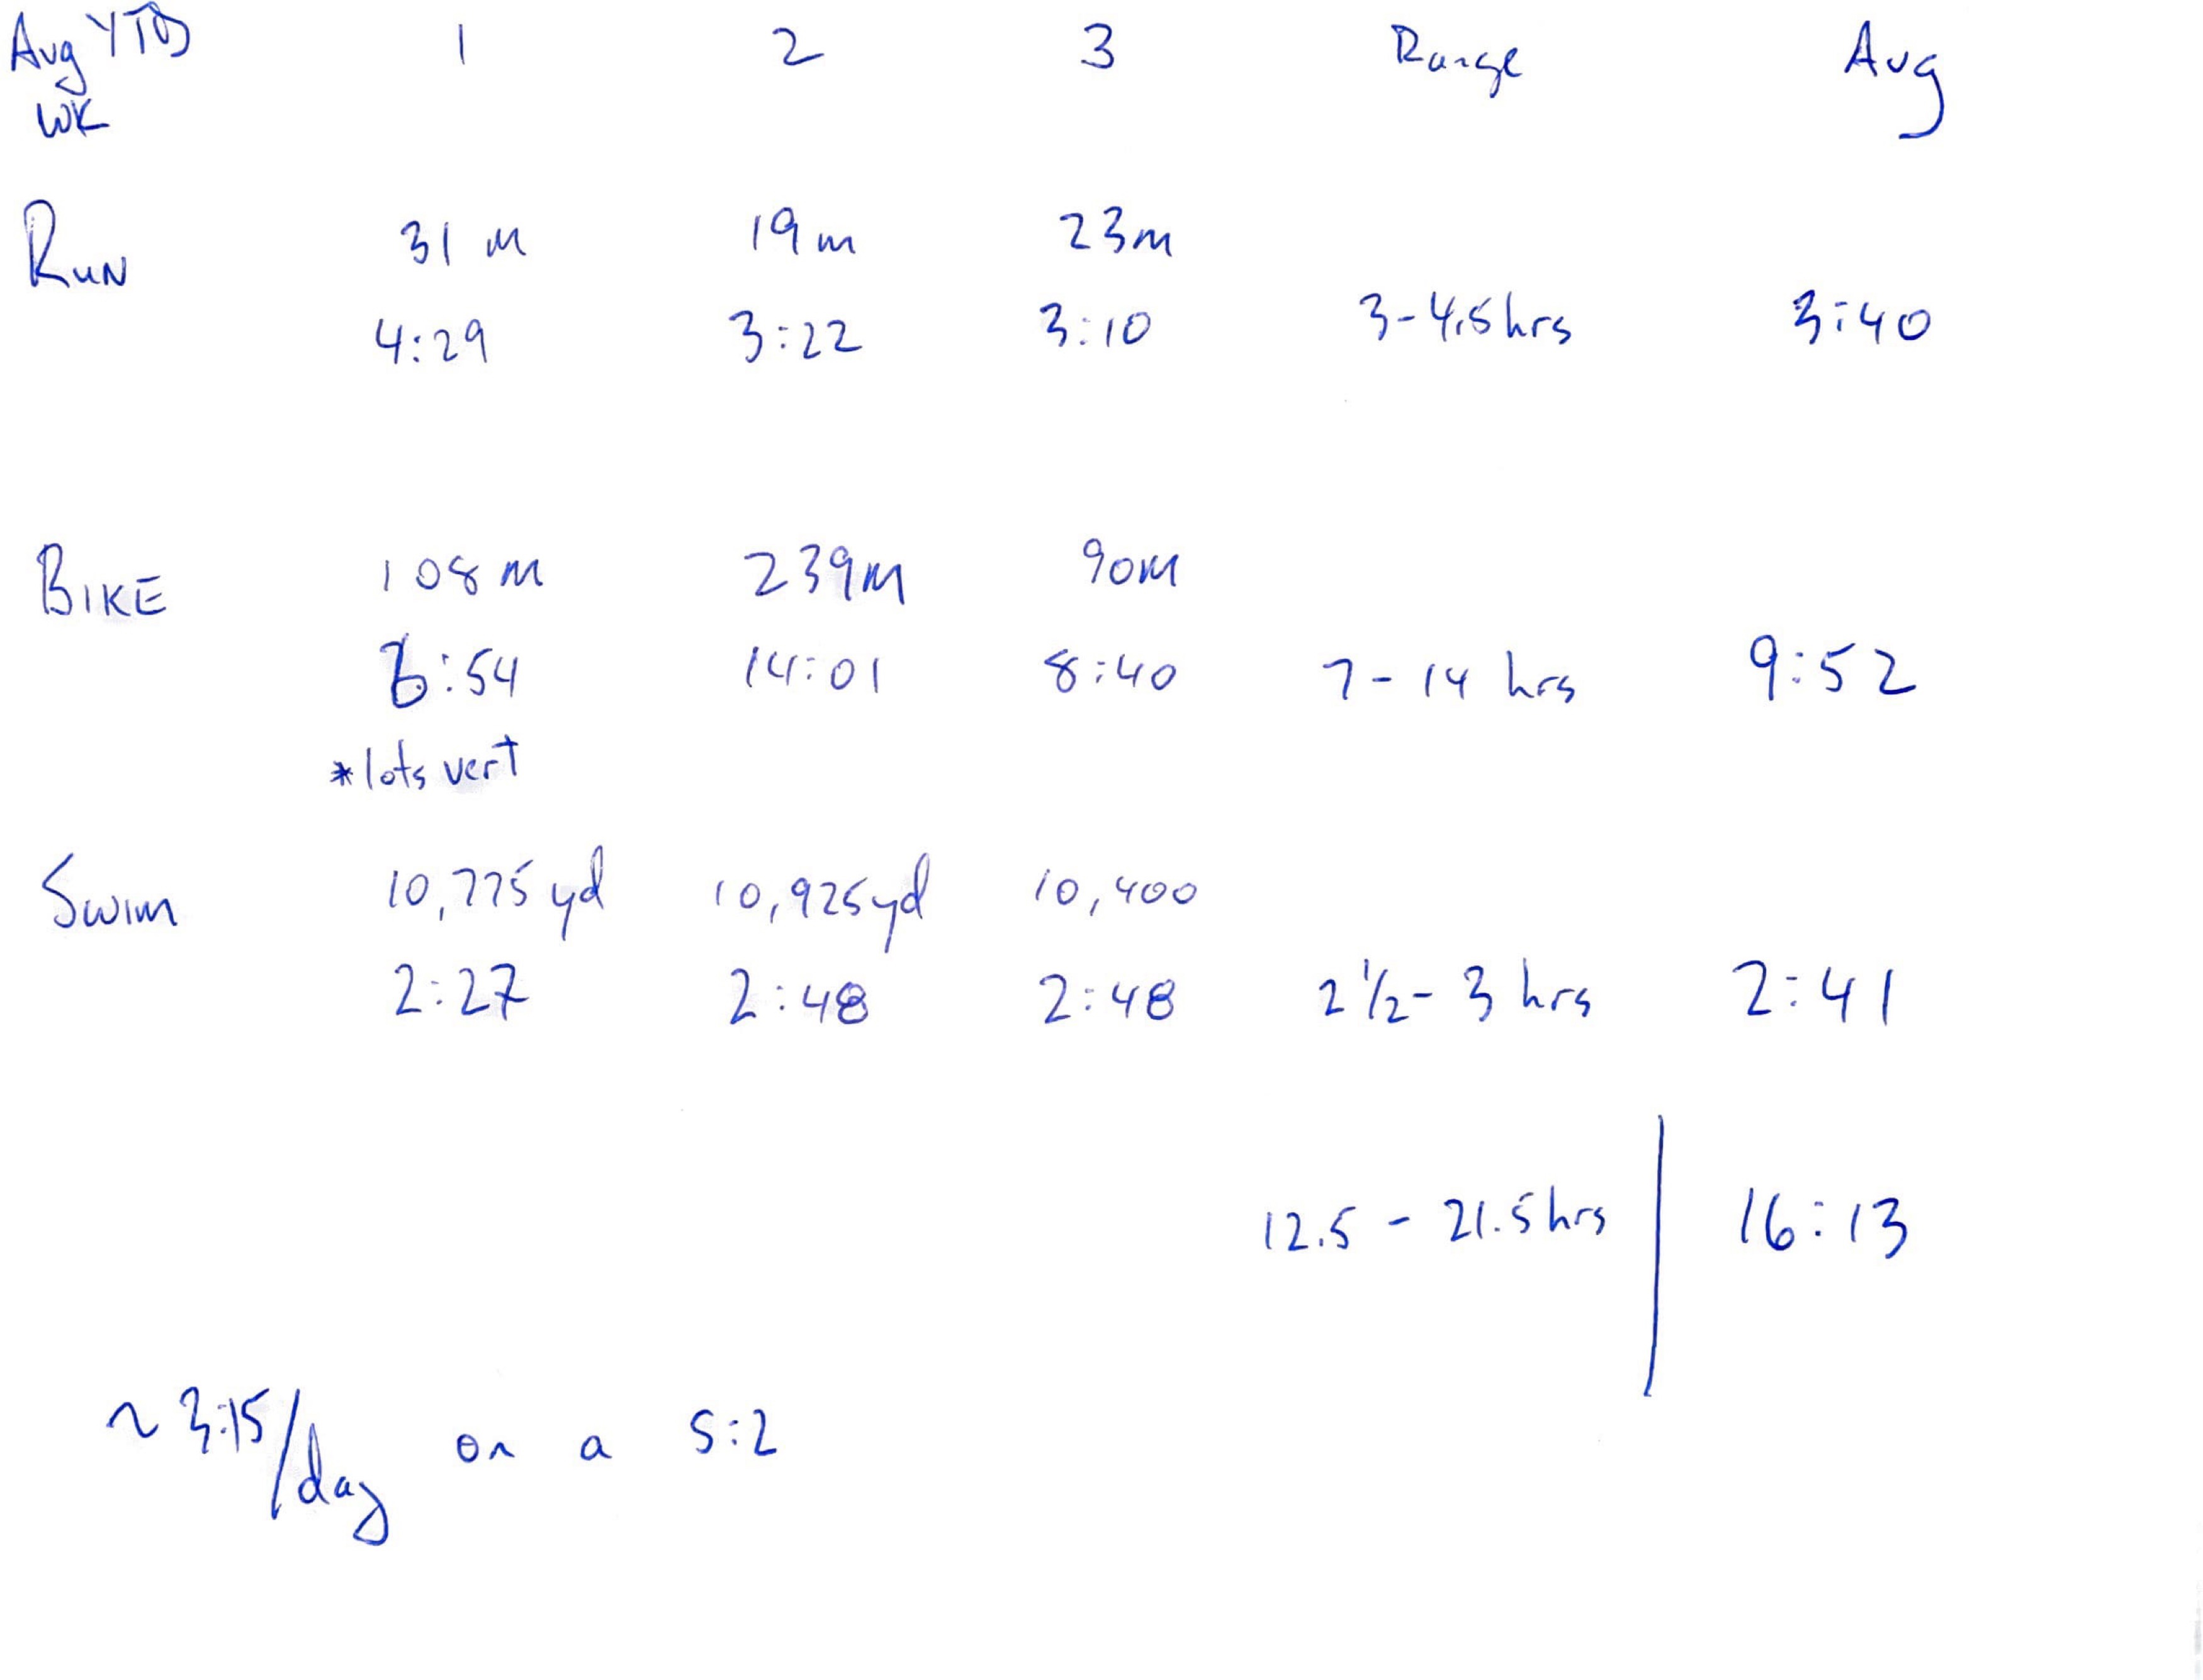 Avg YTD 1 2 3 Range Avg
WK
Run 31 m 19m 23m
4:29 3:22 3:10 3-4.5hrs 3:40
BIKE 108 m 239m 90m
6:54 14:01 8:40 7-14 hrs 9:52
*lots vert
Swim 10,775 yd 10,925yd 10,400
2:27 2:48 2:48 2 1/2-3 hrs 2:41
12.5 - 21.5hrs 16:13
~3:15/day on a 5:2